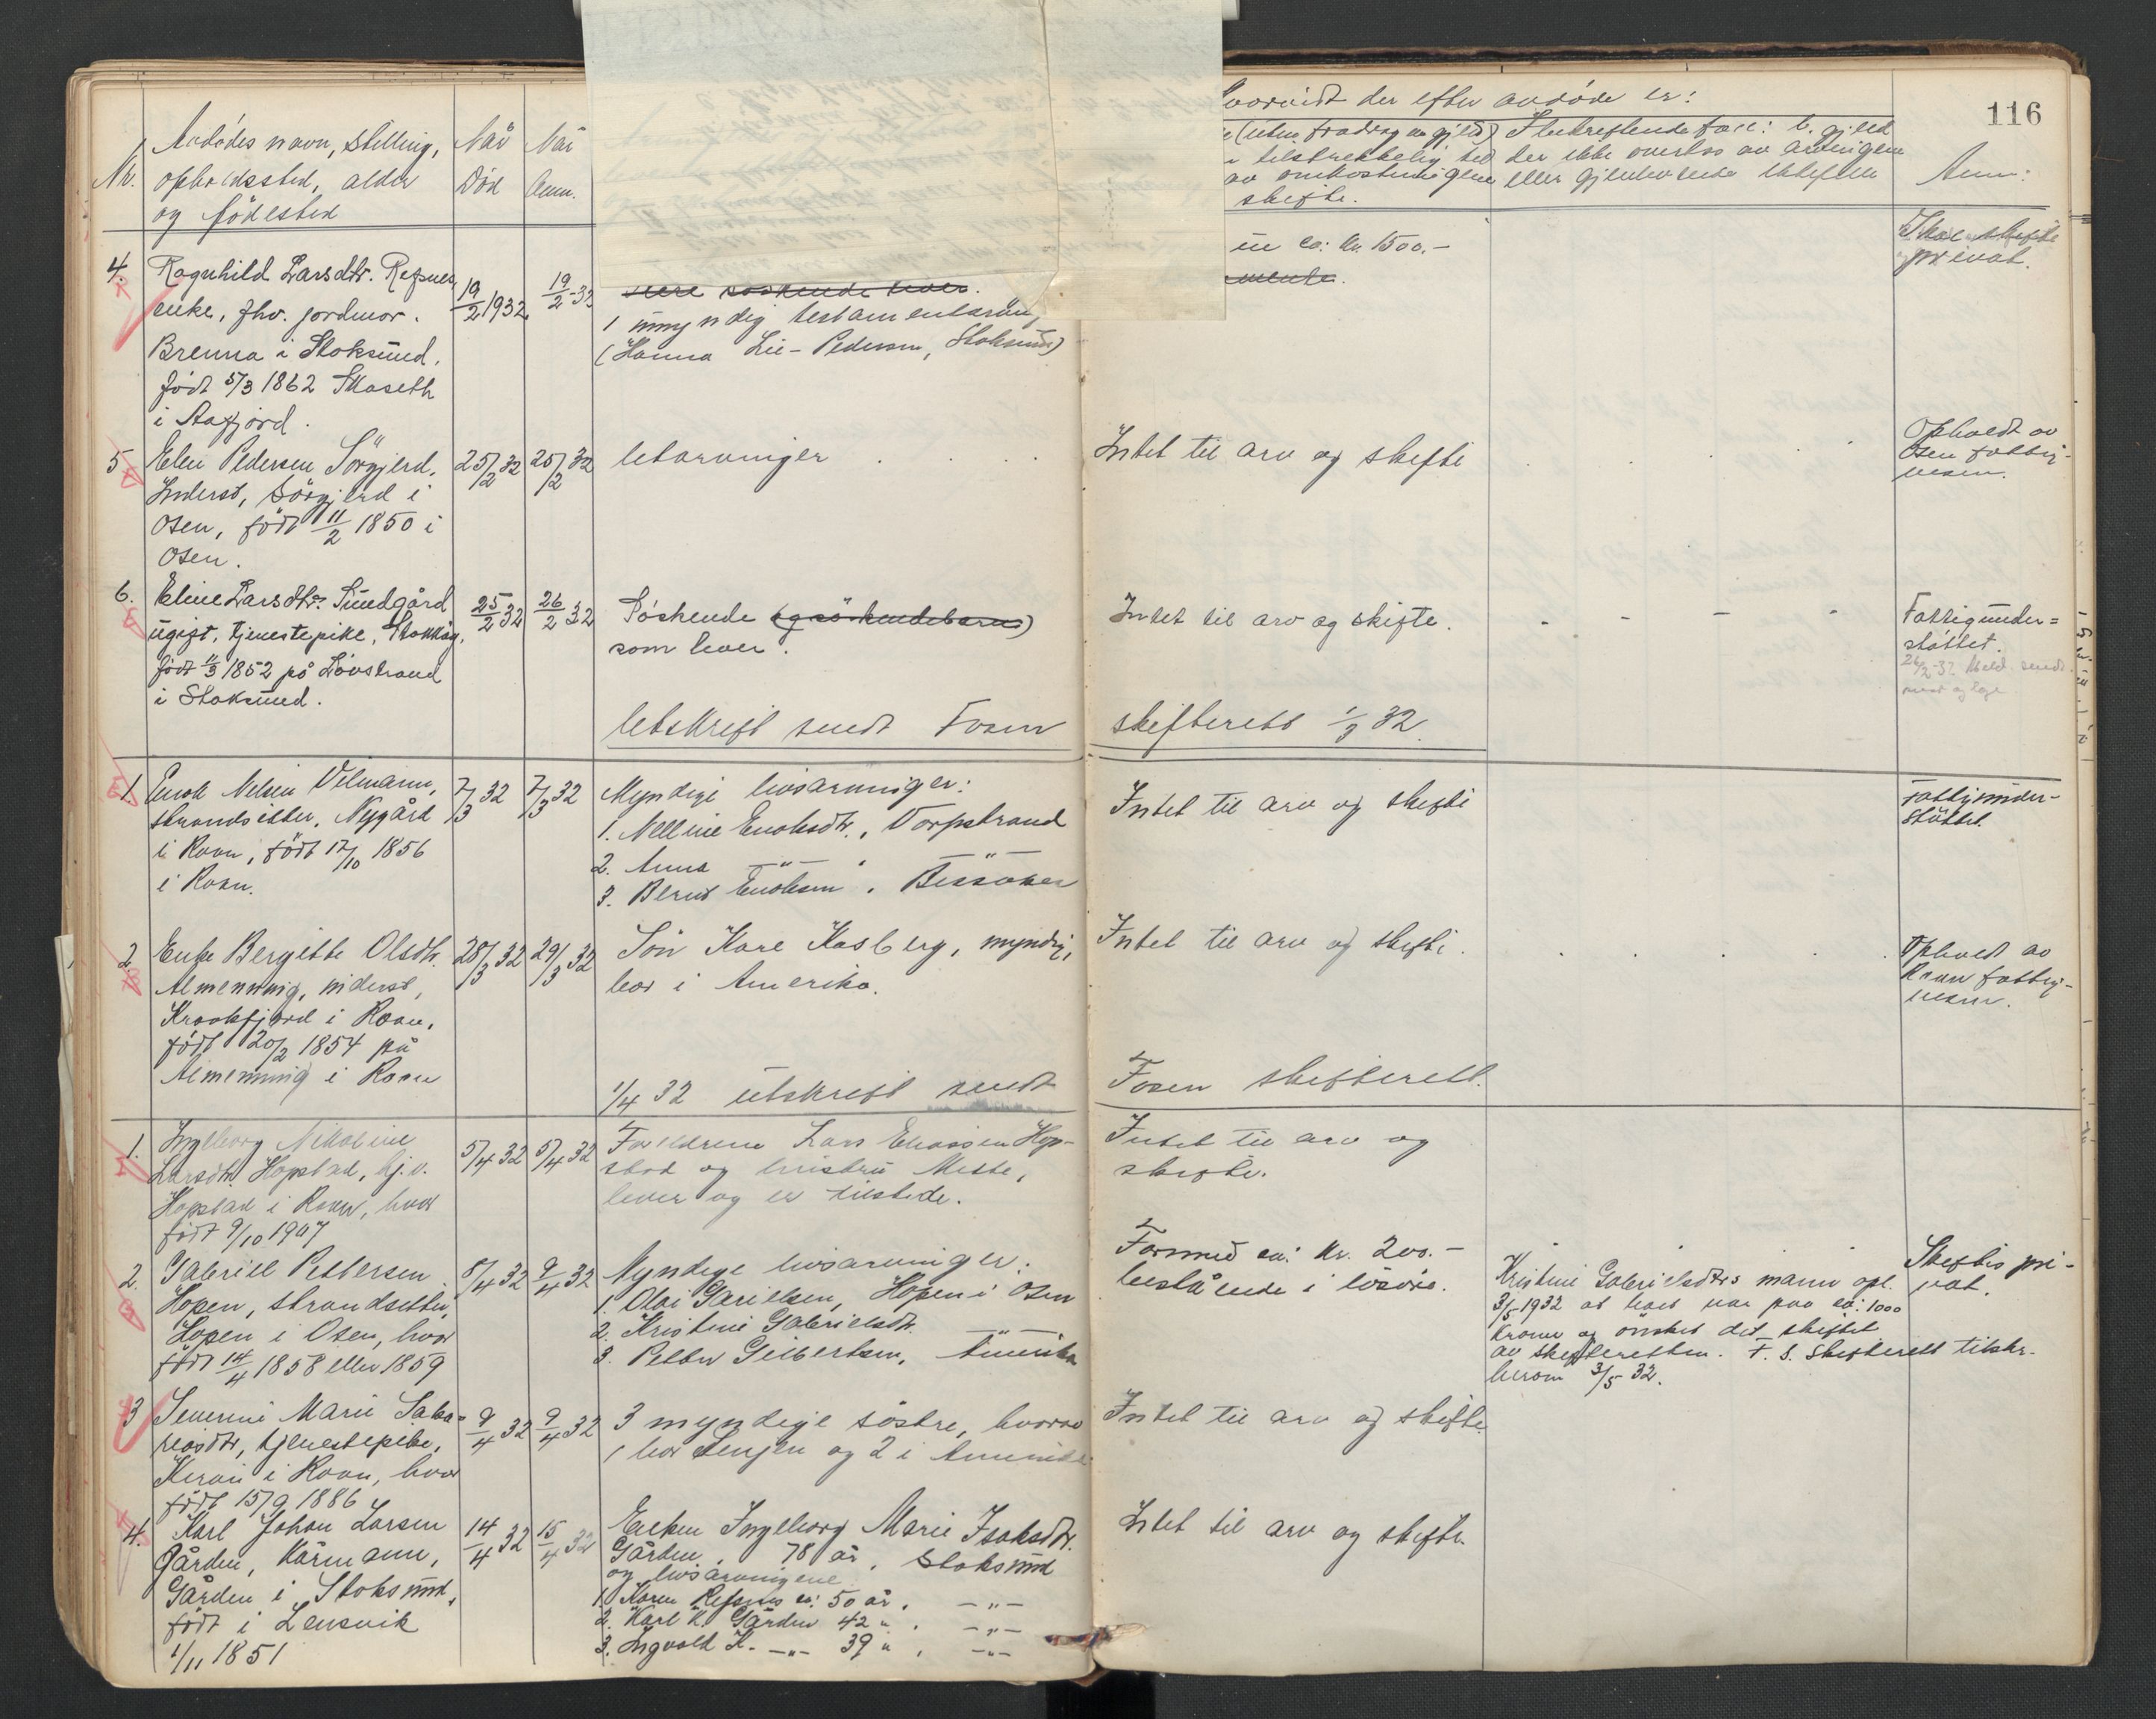 116
Nr.
Avdødes navn, stilling,
opholdssted, alder
og fødested
Når
Død
Når
Anm.
hvorvidt der efter avdøde er:
(uten fradrag av gjeld)
tilstrekkelig til
av omkostningene
skifte.
I bekreftende fald: b. gjeld
der ikke overtas av arvingene
eller gjenlevende ektefelle
Anm:
4.
Ragnhild Larsdtr. Refsnes,
enke, fhv. jordmor.
Brenna i Stoksund.
født 5/3 1862 Skaseth
i Aafjord.
19/2 1932.
19/2-32
søskende lever.
1 umyndig testamentsarving
(Hanna Lie-Pedersen, Stoksund)
ca: kr. 1500.-
Skal skifte
privat.
5
Elen Pedersen Sörgjerd,
Inderst, Sörgjerd i
Osen, født 11/2 1850 i
Osen.
25/2 32
25/2 32
Utarvinger
Intet til arv og skifte
Opholdt av
Osen fattig-
vesen.
6.
Eline Larsdtr. Sundgård
ugift, tjenestepike, Stokköy,
født 11/3 1852 på Lövstrand
i Stoksund.
25/2 32
26/2 32
Søskende (og søskendebarn)
som lever.
Intet til arv og skifte.
Fattigunder=
støttet.
26/2-32 Meld. sendt
Utskrift sendt Fosen
skifterett 1/3 32.
1.
Enok Nelsen Vilmann,
strandsitter, Nygård
i Roan, født 17/10 1856
i Roan.
7/3 32
7/3 32
Myndige livsarvinger:
1. Nelline Enoksdtr., Vorpstrand
2. Anna -"- . -"-
3. Bernt Enoksen, Bessaker
Intet til arv og skifte
Fattigunder-
støttet.
2.
Enke Bergitte Olsdtr.
Almenning, inderst,
Kraakfjord i Roan,
født 20/2 1854 på
Almenning i Roan
28/3 32
29/3 32
Søn Kare Kasberg, myndig,
bor i Amerika.
Intet til arv og skifte.
Opholdt av
Roan fattig-
vesen.
1/4 32 utskrift sendt
Fosen skifterett.
1.
Ingeborg Nikoline
Larsdtr. Hopstad, hj.v.
Hopstad i Roan, hvor
født 9/10 1907
5/4 32
5/4 32
Foreldrene Lars Eliassen Hop-
stad og hustru Mette,
lever og er tilstede.
Intet til arv og
skifte.
2.
Gabriel Pettersen
Hopen, strandsitter,
Hopen i Osen, hvor
født 14/4 1858 eller 1859
8/4 32
9/4 32
Myndige livsarvinger:
1. Olai Garielsen, Hopen i Osen
2. Kristine Gabrielsdtr. -"-
3. Petter Geibertsen, Amerika
Formue ca: kr. 200.-
bestående i løsøre.
Kristine Gabrielsdtrs mann opl.
3/5-1932 at boet var paa ca: 1000
kroner og ønsket det skiftet
av skifteretten. F. S. skifterett tilskr.
herom 3/5 32.
Skiftes pri-
vat.
3
Severine Marie Saka=
riasdtr, tjenestepike,
Kiran i Roan, hvor
født 15/9 1886
9/4 32
9/4 32
3 myndige søstre, hvorav
1 bor Senjen og 2 i Amerika
Intet til arv og skifte.
4.
Karl Johan Larsen
Gården, Kårmann,
Gården i Stoksund,
født i Lensvik
1/11 1851
14/4 32
15/4 32
Enken Ingeborg Marie Isaksdtr.
Gården, 78 år, Stoksund
og livsarvingene
1. Karen Refsnes ca: 50 år, -"-
2. Karl K. Gården 42 ", -"-
3. Ingvald K. -"- 39 ", -"-
Intet til arv og skifte.